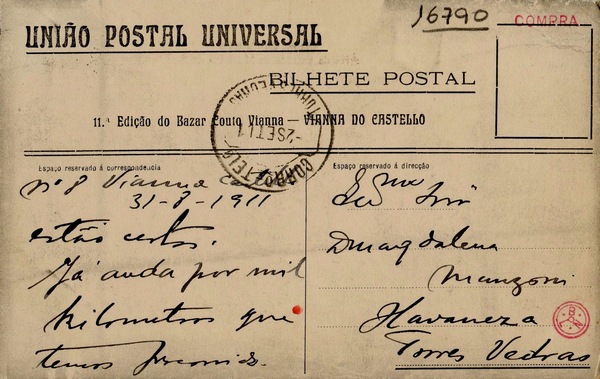 16790
COMPRA
UNIÃO POSTAL UNIVERSAL
BILHETE POSTAL
11.ª Edição do Bazar Couto Vianna — VIANNA DO CASTELLO
CORREIO
2 SET 11
TORRES VEDRAS
Espaço reservado á correspondencia
nº 8 Vianna
31-8-1911
estão certos.
Já anda por mil
kilometros que
temos
Espaço reservado á direcção
D Magdalena
Manzoni
Havaneza
Torres Vedras